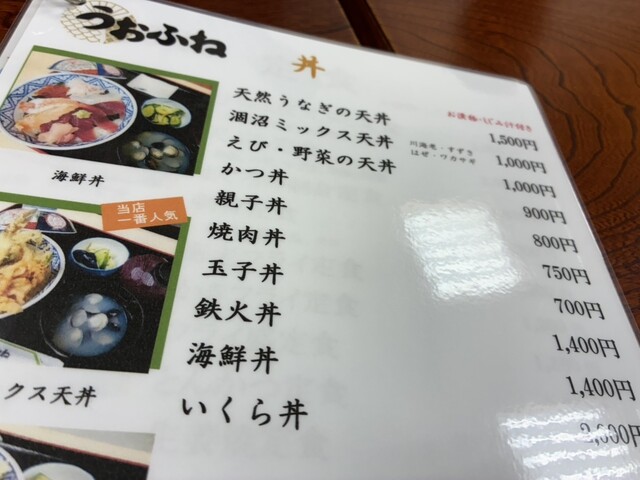 うおふね
丼
お漬物・しじみ汁付き
天然うなぎの天丼 1,500円
涸沼ミックス天丼 川海老・すずき はぜ・ワカサギ 1,000円
えび・野菜の天丼 1,000円
かつ丼 900円
親子丼 800円
焼肉丼 750円
玉子丼 700円
鉄火丼 1,400円
海鮮丼 1,400円
いくら丼 2,000円
海鮮丼
当店
一番人気
クス天丼